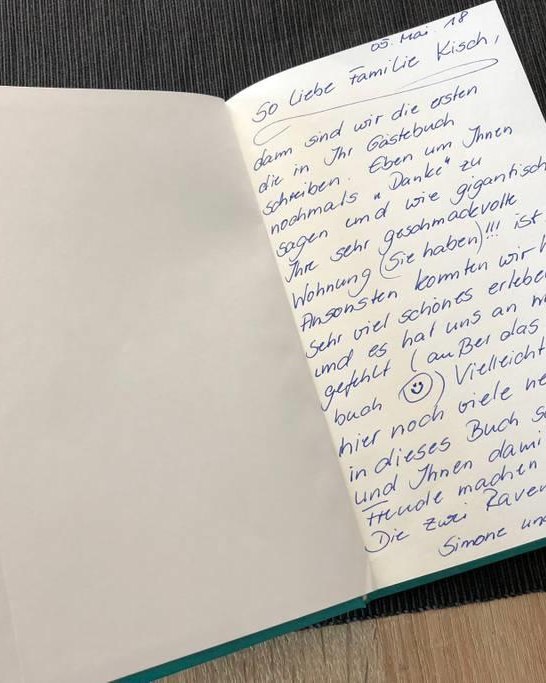 05. Mai. 18
So liebe Familie Kisch,
dann sind wir die ersten
die in Ihr Gästebuch
schreiben. Eben um Ihnen
nochmals "Danke" zu
sagen und wie gigantisch
Ihre sehr geschmackvolle
Wohnung (Sie haben)!!! ist
Ansonsten konnten wir
sehr viel schönes erleben
und es hat uns an
gefehlt (außer das
buch ☺) Vielleicht
hier noch viele
in dieses Buch
und Ihnen
Freude machen
Die zwei
Simone und